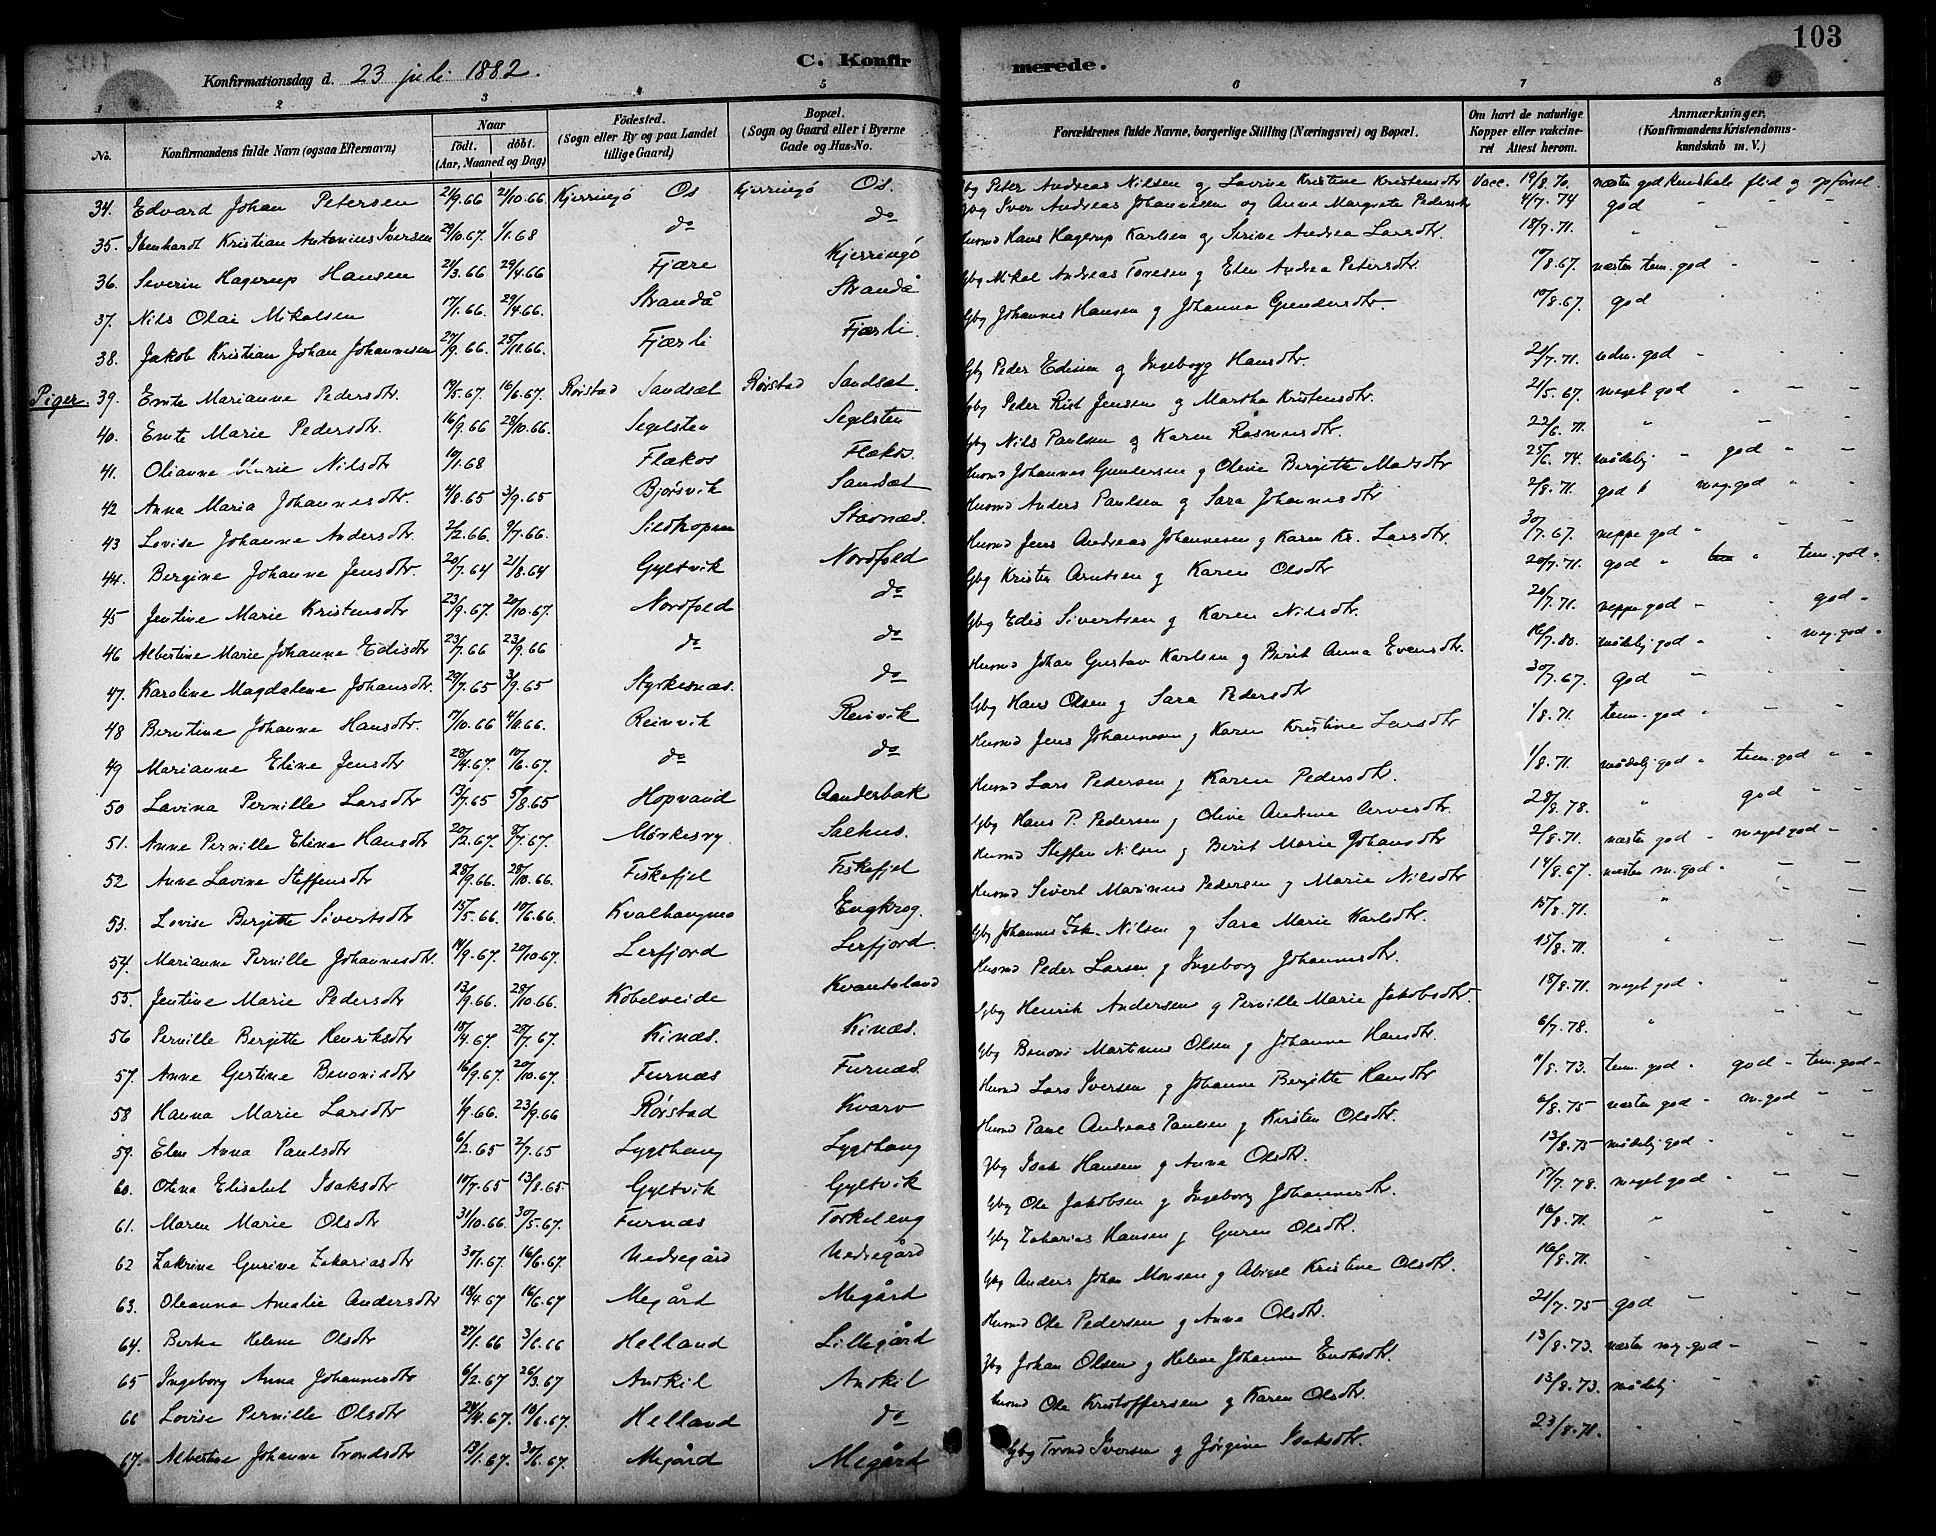 103
C. Konfirmerede.
Konfirmationsdag d. 23 juli 1882.
1 2 3 4 5 6 7 8
No. Konfirmandens fulde Navn (ogsaa Efternavn) Naar født. døbt. (Aar, Maaned og Dag) Födested. (Sogn eller By og paa Landet tillige Gaard) Bopæl. (Sogn og Gaard eller i Byerne Gade og Hus-No. Forældrenes fulde Navne, borgerlige Stilling (Næringsvei) og Bopæl. Om havt de naturlige Kopper eller vakcineret Attest herom. Anmærkninger, (Konfirmandens Kristendomskundskab m. V.)
34. Edvard Johan Petersen 21/9.66 21/10.66 Kjerringø Os Kjerringø Os. Gbg Peter Andreas Nilsen og Lovise Kristine Kristensdtr Vacc. 19/8.70. næsten god kundskab flid og opførsel.
35. Ibenhardt Kristian Antonius Iversen 29/10.67. 1/1.68 do do Gbg Iver Andreas Johannesen og Anne Margrete Pedersdtr 4/7.74 god " " "
36. Severin Hagerup Hansen 21/3.66 29/4.66 Fjære Kjerringø Husmd Hans Hagerup Karlsen og Serine Andrea Larsdtr. 18/7.71. " "
37. Nils Olai Mikalsen 17/1.66. 29/4.66. Strandå Strandå Gbg Mikal Andreas Tøresen og Elen Andrea Petersdtr. 17/8.67. næsten tem. god " " "
38. Jakob Kristian Johan Johannesen 27/9.66. 25/11.66. Fjærli Fjærli. Gbg Johannes Hansen og Johanna Gundersdtr. 10/8.67. god
Piger. 39. Emte Marianne Pedersdtr. 19/5.67. 16/6.67. Rørstad Sandsæt Rørstad Sandsæt. Gbg Peder Edisen og Ingeborg Hansdtr. 21/7.71. udm. god " " "
40. Emte Marie Pedersdtr. 16/9.66 28/10.66. Segelsten Segelsten Gbg Peder Rist Jensen og Martha Kristensdtr. 21/5.67. meget god " " "
41. Olianne Marie Nilsdtr 10/1.68 Flakos Flakos. Gbg Nils Paulsen og Karen Rasmusdtr. 22/6.71. " " "
42 Anna Maria Johannesdtr 4/8.65 3/9.65 Bjørsvik Sandsæt Husmd Johannes Gundersen og Oline Bergitte Madsdtr 25/6.74. mådelig " god " "
43 Lovise Johanne Andersdtr. 2/2.66. 9/7.66. Sildhopen Stavnæs. Husmd Anders Paulsen og Sara Johannesdtr 2/8.71. god meg. god " "
44. Bergine Johanne Jensdtr. 20/7.64 21/8.64 Gyltvik Nordfold Husmd Jens Andreas Johannesen og Karen Kr. Larsdtr. 30/7.67. neppe god " " "
45 Jentine Marie Kristensdtr 23/9.67. 20/10.67. Nordfold do Gbg Kristen Arntsen og Karen Olsdtr 20/7.71. god " " tem. god "
46 Albertine Marie Johanne Edisdtr 23/7.66 23/9.66 do do Gbg Edis Sivertsen og Karen Nilsdtr. 20/7.71. neppe god " god "
47. Karoline Magdalene Johansdtr. 29/7.65 3/9.65 Styrkesnæs. do Husmd Johan Gustav Karlsen og Berit Anna Evensdtr. 16/7.80. mådelig god " " meg. god "
48 Berntine Johanne Hansdtr. 17/10.66 4/11.66. Reinvik Reinvik Gbg Hans Olsen og Sara Pedersdtr 30/7.67. god " " "
49 Marianne Eline Jensdtr 28/4.67. 10/6.67. do do Husmd Jens Johannesen og Karen Kristine Larsdtr 1/8.71. tem. god " " "
50 Lavina Pernille Larsdtr 13/7.65 5/8.65 Hopvand Aanderbak Husmd Lars Pedersen og Karen Pedersdtr. 1/8.71. mådelig god " tem. god " "
51. Anne Pernille Eline Hansdtr 20/2.67. 8/7.67. Mørkesvy Salhus. Gbg Hans P. Pedersen og Oline Andrine Arvesdtr. 28/8.78. " god " "
52 Anne Lavine Steffensdtr 28/9.66. 28/10.66. Fiskefjel Fiskefjel Husmd Steffen Nilsen og Berit Marie Johansdtr 2/8.71. næsten god " meget god " "
53. Lovise Bergitte Sivertsdtr 15/5.66 10/6.66 Kvalhaugmo Engkrog. Husmd Sivert Marinus Pedersen og Marie Nilsdtr 14/8.67. næsten m. god " " "
54. Marianne Pernille Johannesdtr. 14/9.67. 20/10.67. Lerfjord Lerfjord. Gbg Johannes Zak. Nilsen og Sara Marie Karlsdtr. 15/8.71. " " "
55. Jentine Marie Pedersdtr 13/9.66. 28/10.66. Kobelveide Kvantoland Husmd Peder Larsen og Ingeborg Johannesdtr. 15/8.71. " " "
56 Pernille Bergitte Henriksdtr 18/4.67. 28/7.67. Kinæs. Kinæs. Gbg Henrik Andersen og Pernille Marie Jakobsdtr. 18/8.71. meget god " " "
57. Anne Gertine Benonisdtr 16/9.67. 20/10.67. Furnæs Furnæs. Gbg Benoni Martinus Olsen og Johanne Hansdtr. 6/7.78. " " "
58 Hanna Marie Larsdtr 1/9.66. 23/9.66 Rørstad Kvarv Husmd Lars Iversen og Johanne Bergitte Hansdtr 11/8.73. tem. god " god " tem. god "
59. Elen Anna Paulsdtr 6/2.65 2/7.65 Lygthaug Lygthaug Husmd Paul Andreas Paulsen og Kirsten Olsdtr. 6/8.75 næsten god " m. god " "
60. Otina Elisabet Isaksdtr 10/7.65 13/8.65. Gyltvik Gyltvik Gbg Isak Hansen og Anna Olsdtr. 13/8.75 mådelig god " " "
61. Maren Marie Olsdtr 31/10.66. 30/5.67. Furnæs Torkeleng Gbg Ole Jakobsen og Ingeborg Johannesdtr. 17/7.78. meget god " " "
62 Zakrine Gurine Zakariasdtr 30/1.67. 16/6.67. Nedregård Nedregård Gbg Zakarias Hansen og Guren Olsdtr. 16/8.71. " " "
63. Oleanna Amalie Andersdtr 18/4.67 16/6.67 Megård Megård Gbg Anders Johan Monsen og Abigel Kristine Olsdtr. 16/8.71. " " "
64. Berta Helene Olsdtr 27/1.66 3/6.66 Helland Lillegård Husmd Ole Pedersen og Anna Olsdtr. 21/7.75 god " " "
65 Ingeborg Anna Johannesdtr 6/2.67 26/3.67 Andkil Andkil Gbg Johan Olsen og Helene Johanna Endresdtr. 13/8.73. næsten meg. god " " "
66 Lovise Pernille Olsdtr 24/4.67. 10/6.67. Helland do Husmd Ole Kristoffersen og Karen Olsdtr. 13/8.73. mådelig " "
67. Albertine Johanna Trondsdtr 13/1.67. 30/6.67. Megård Megård Gbg Trond Iversen og Jørgine Isaksdtr. 23/8.71. " " "